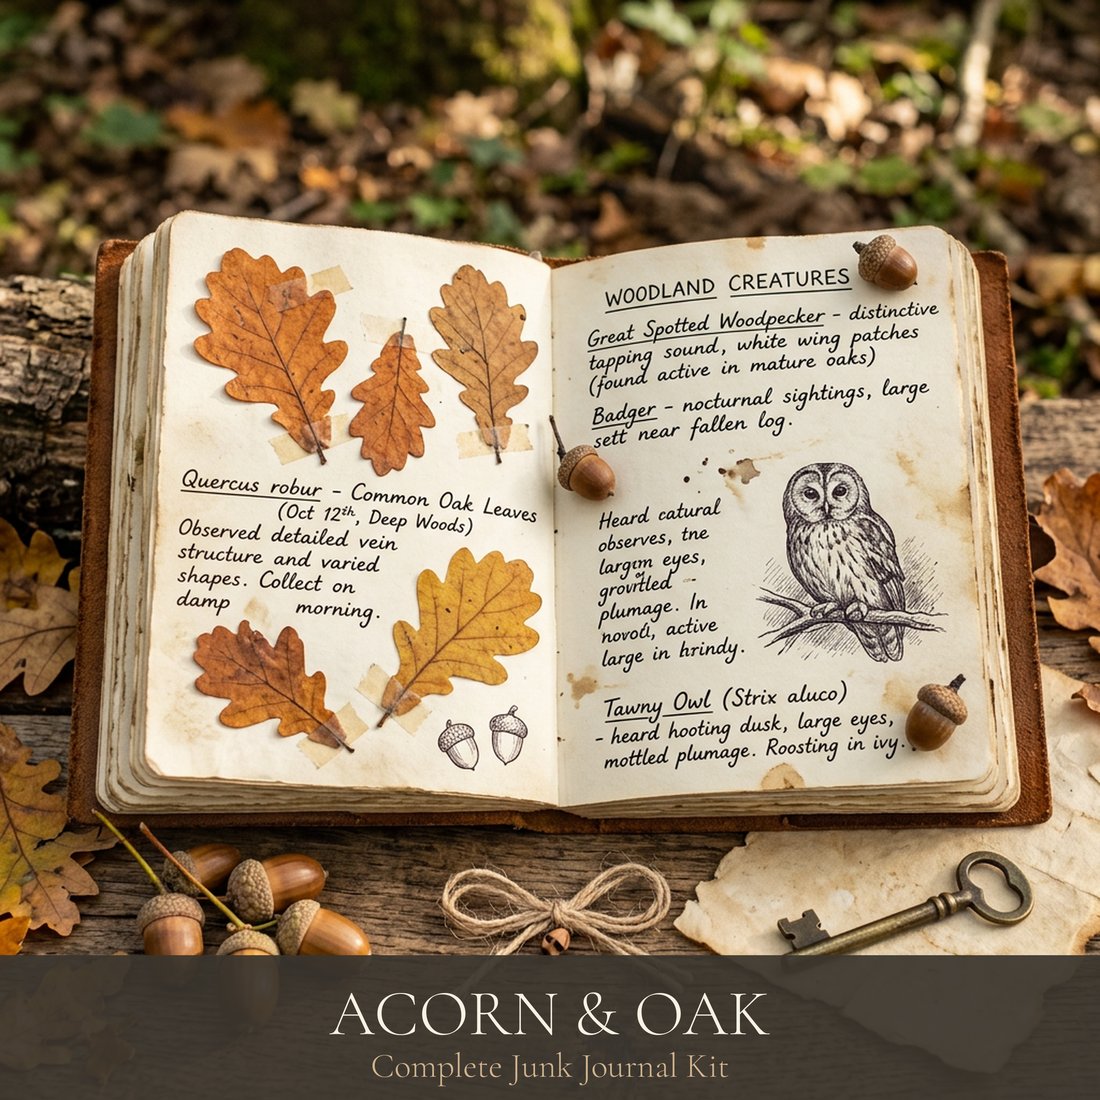 Quercus robur - Common Oak Leaves
(Oct 12th, Deep Woods)
Observed detailed vein
structure and varied
shapes. Collect on
damp morning.
WOODLAND CREATURES
Great Spotted Woodpecker - distinctive
tapping sound, white wing patches
(found active in mature oaks)
Badger - nocturnal sightings, large
sett near fallen log.
Heard catural
observes, tne
largim eyes,
plumage. In
active
large in hrindy.
Tawny Owl (Strix aluco)
- heard hooting dusk, large eyes,
mottled plumage. Roosting in ivy.
ACORN & OAK
Complete Junk Journal Kit